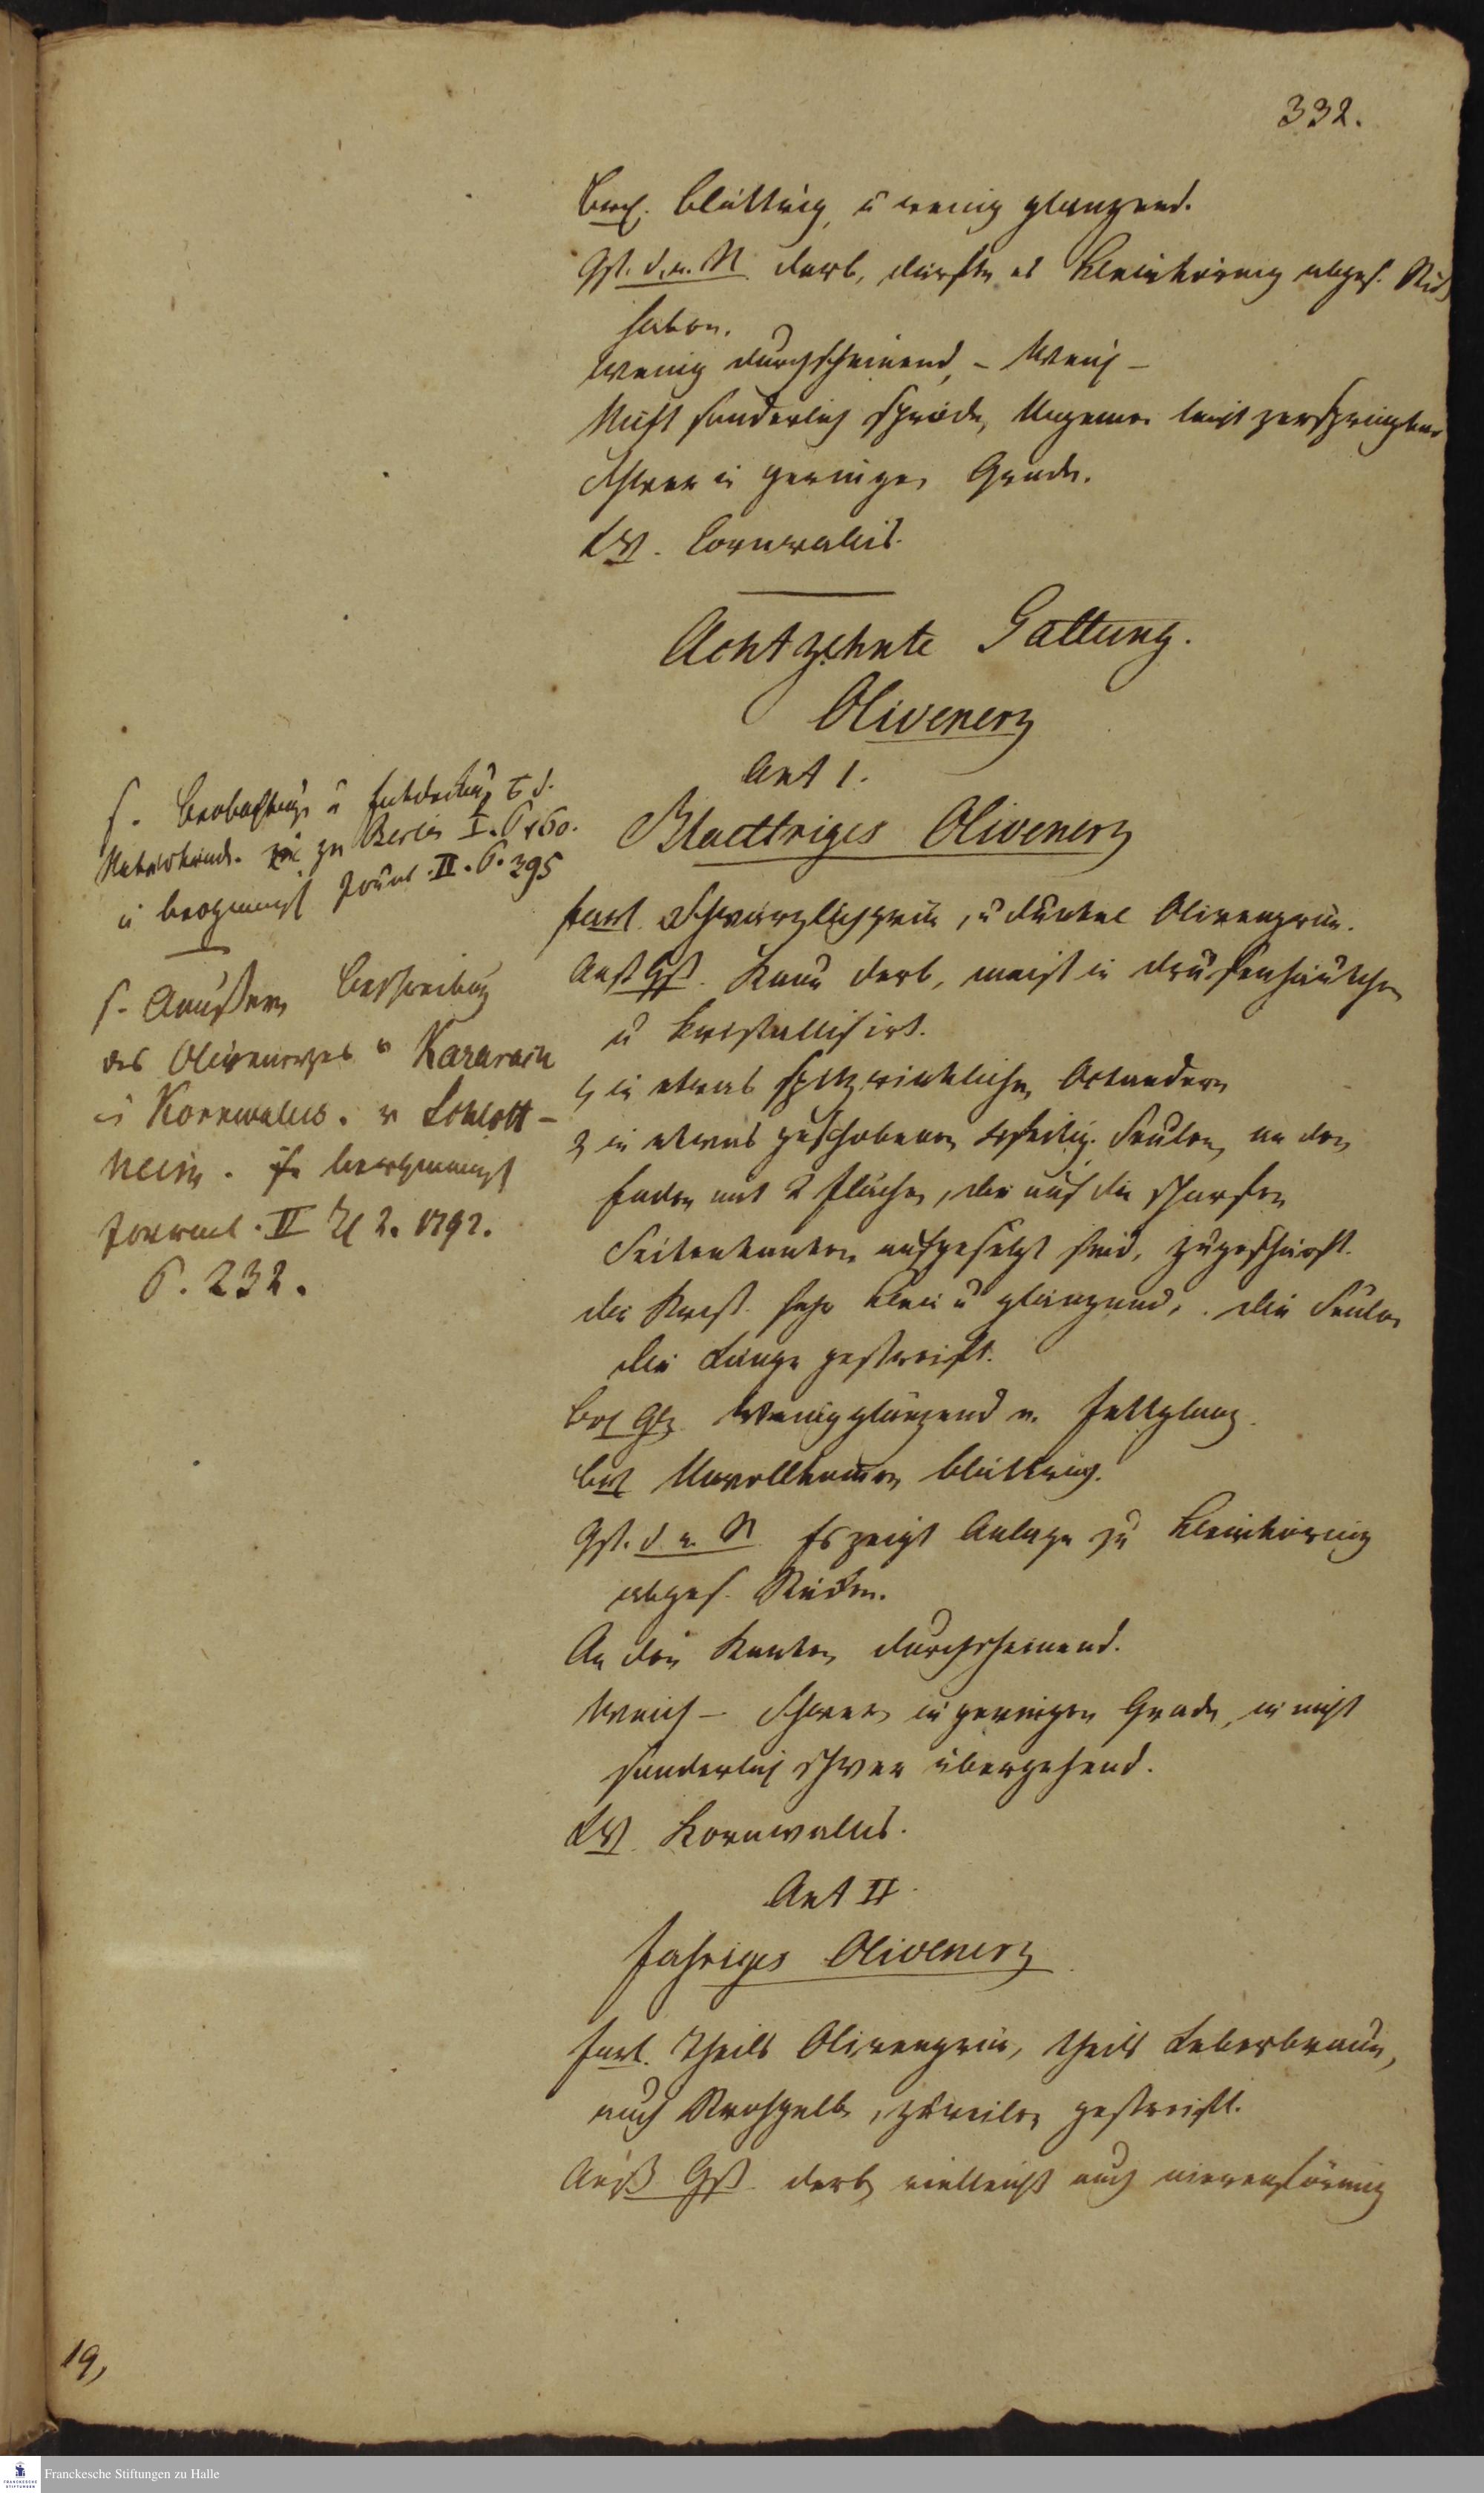 332.
Bruch. blättrig, u wenig glänzend.
Gst. d. a. St. derb, dürfte es kleinkörnig abges. Stück
haben.
Wenig durchscheinend, - Weich -
Nicht sonderlich spröde, Ungemein leicht zerspringbar
Schwer in geringem Grade.
Cornwallis.
Achtzehnte Gattung.
Olivenerz
Art 1.
Blaettriges Olivenerz
Farb. Schwärzlichgrün, u dunkel Olivengrün.
Aeuß Gst. Kaum derb, meist in drusenhäutchen
u kristallisirt.
1, in etwas spitzwinklichen Octaedern
2, in etwas geschobenen 4seitig. Seulen, an den
Enden mit 2 Flächen, die auf die scharfen
Seitenkanten aufgesetzt sind, zugeschärft.
die Kryst. sehr klein u glänzend, die Seulen
die Länge gestreift.
Br. Glz. Wenigglänzend v. Fettglanz.
Bru Unvollkommen blättrig.
Gst. d a. St. Es zeigt Anlage zu kleinkörnig
abges. Stücken.
An den Kanten durchscheinend.
Weich - Schwer in geringem Grade, in nicht
sonderlich schwer übergehend.
Kornwallis.
Art II.
Fasriges Olivenerz
Farb. Theils Olivengrün, theils Leberbraun,
auch Strohgelb, zuweilen gestreift.
Aeuß Gst. derb, vielleicht auch nierenförmig
s. Beobachtung u Entdeckung d.
Naturkunde. zu Berlin I. S.
u bergmänn. Journ. II. S. 395
s. Aeußern Beschreibung
des Olivenerzes v Kararach
in Kornwallis. v Schlott-
heim. bergmännisch
Journal. 2. 1792.
S. 232.
19,
Franckesche Stiftungen zu Halle